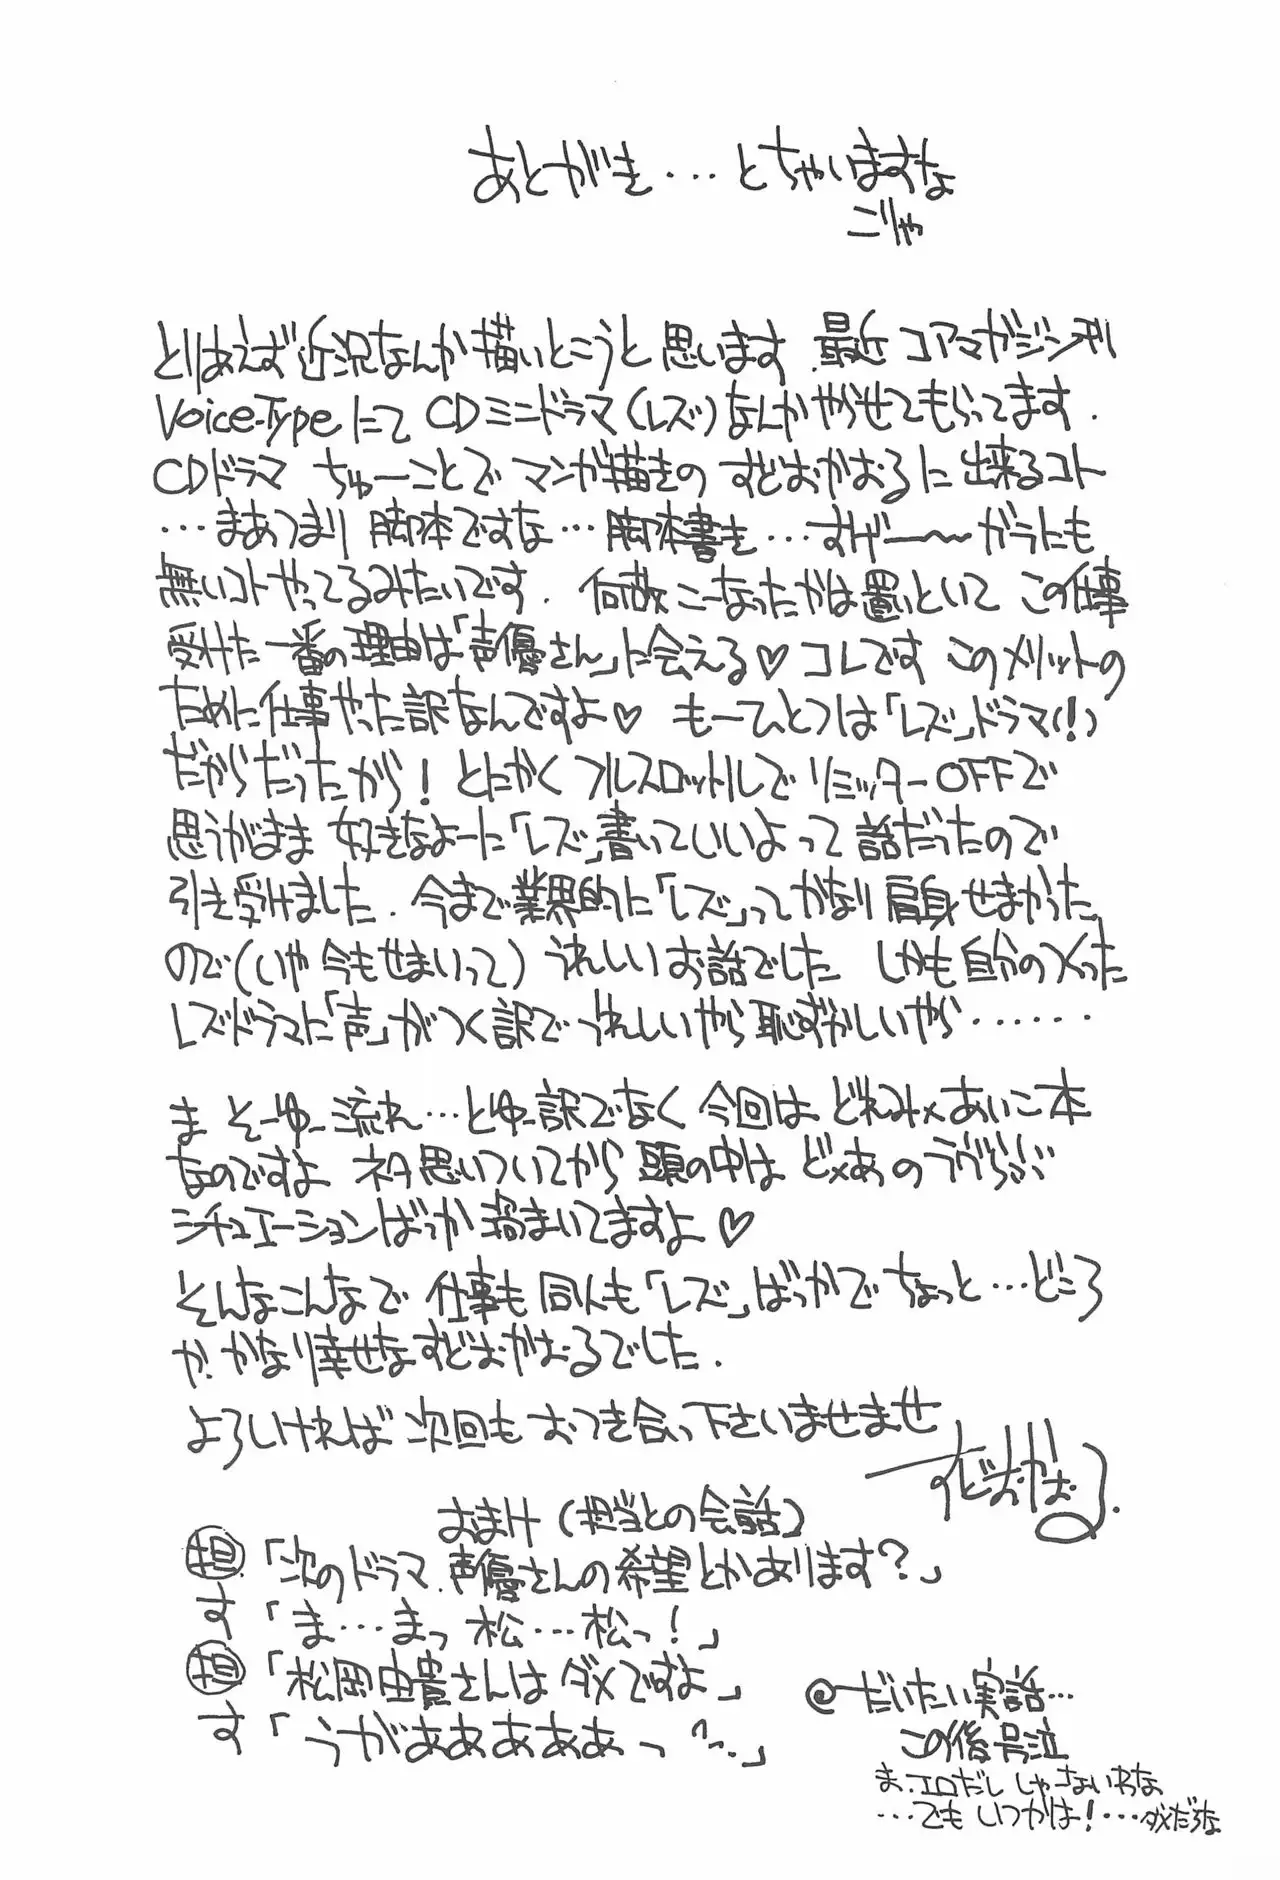 あとがき...とちゃいますなょ
こりゃ
とりあえず近況なんか描いとこうと思います. 最近 コアマガジン刊
Voice-Typeにて CDミニドラマ(レズ)なんかやらせてもらってます.
CDドラマ ちゅーことで マンガ描きの すどおかおるに 出来るコト
...まあつまり 脚本ですな...脚本書き...すげー〜 ガラにも
無いコトやってるみたいです. 何故こーなったかは置いといて この仕事
受けた一番の理由は「声優さん」に会える♡コレです このメリットの
ために仕事やった訳なんですよ♡ もーひとつは「レズ」ドラマ(!)
だからだったから! とにかくフルスロットルしでリミッターOFFで
思うがまま 好きなよーに「レズ」書いていいよって話だったので
引き受けました. 今まで業界的に「レズ」ってかなり肩身せまかった
ので(いや今もせまいって) うれしいお話でした しかも自分のつくった
レズドラマに「声」がつく訳で うれしいやら恥ずかしいやら......
ま そーゆー流れ...とゆー訳でなく 今回は どれみ×あいこ本
なのですよ ネタ思いついてから 頭の中は ど×あのラヴらぶ
シチュエーションばっか渦まいてますよ♡
そんなこんなで 仕事も同人も「レズ」ばっかで ちょっと...どころ
か. かなり幸せなすどおかおるでした.
よろしければ 次回も おつき合って下さいませませ
すどおかおる.
おまけ (担当との会話)
担 「次のドラマ. 声優さんの希望とかあります?」
す 「ま...まっ 松...松っ!」
担 「松岡由貴さんは ダメですよ」
す 「うがあああああっ...」
@だいたい実話...
この後号泣
ま.エロだし しゃーないわな
...でも いつかは!...ダメだろな